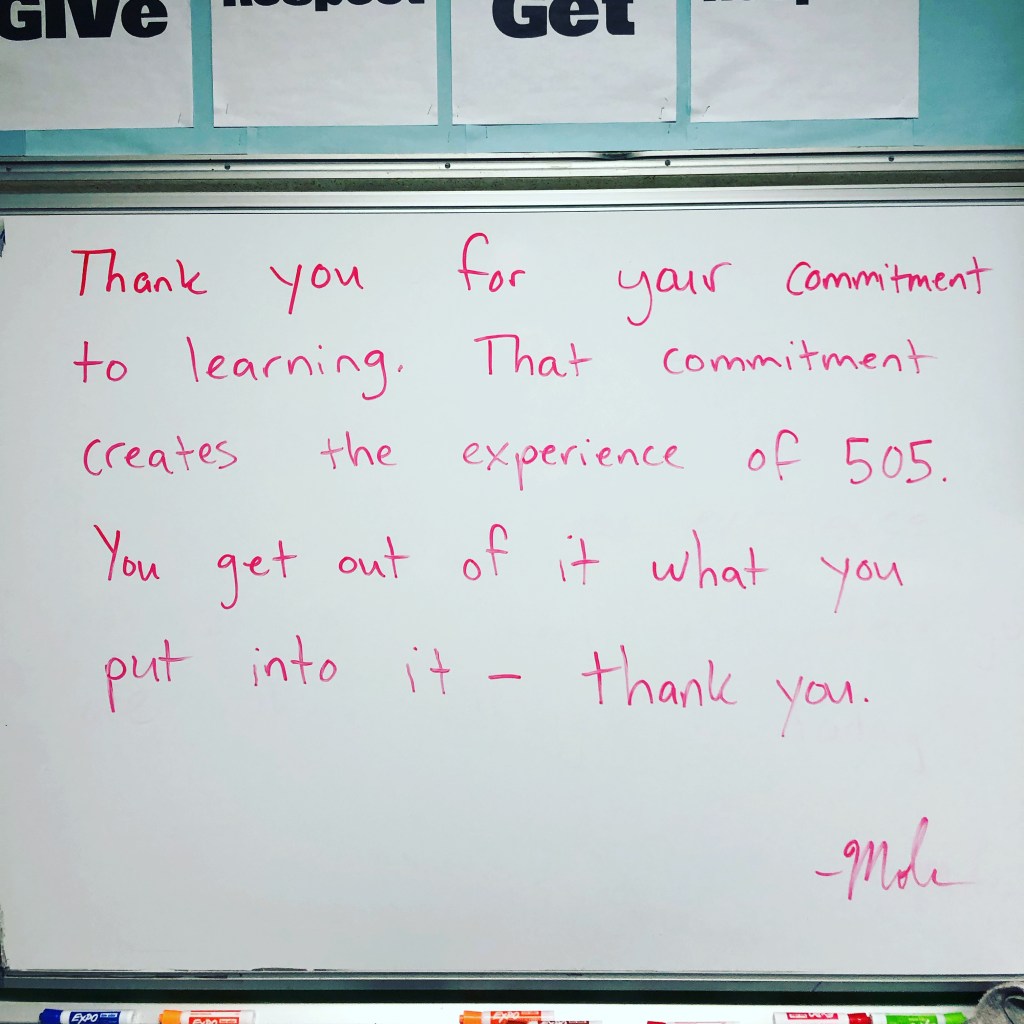 Give Respect Get
Thank you for your commitment
to learning. That commitment
creates the experience of 505.
You get out of it what you
put into it – thank you.
EXPO EXPO EXPO EXPO